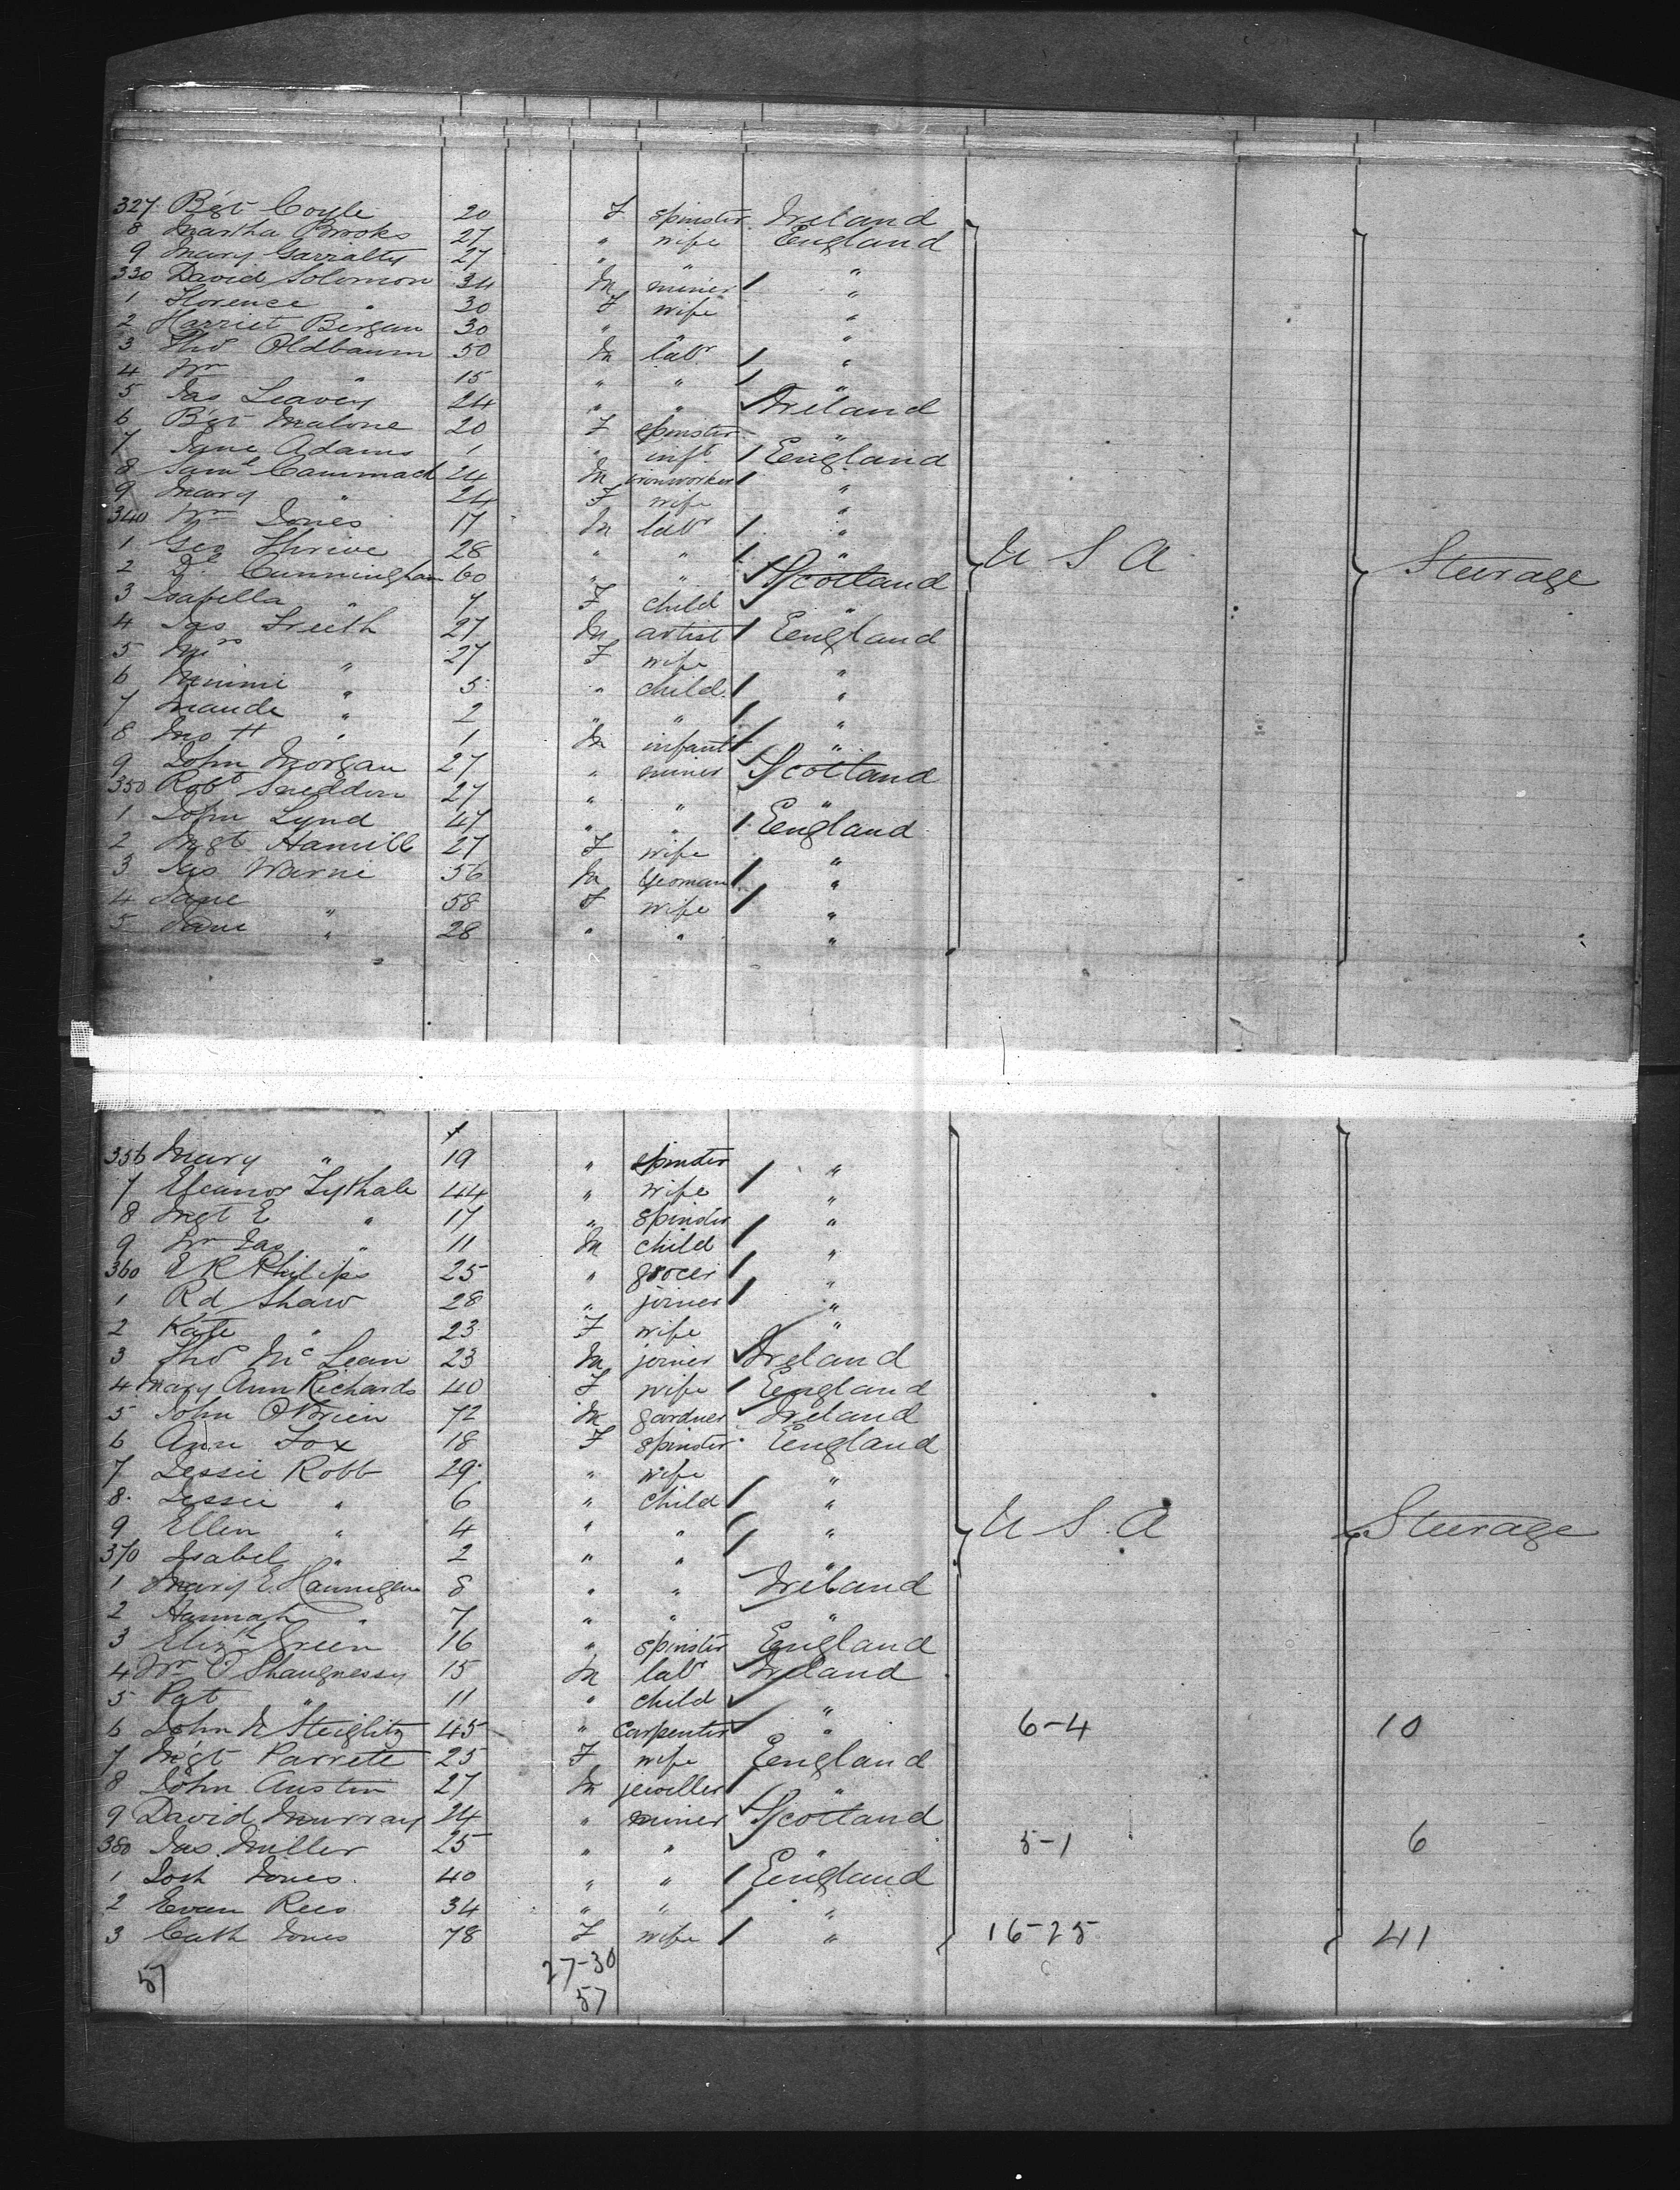 327 Bgt Coyle 20 F spinster Ireland
8 Martha Brooks 27 " wife England
9 Mary Garrialty 27 " " "
330 David Solomon 34 M miner "
1 Florence " 30 F wife "
2 Harriet Bergan 30 " " "
3 Thos Oldbaum 50 M labr "
4 Wm " 15 " " "
5 Jas Leavey 24 " " Ireland
6 Bgt Malone 20 F spinster "
7 Jane Adams 1 " inft England
8 Saml Cammack 24 M ironworker "
9 Mary " 24 F wife "
340 Wm Jones 17 M labr "
1 Geo Shrive 28 " " " U S A Steerage
2 Dl Cunningham 60 " " Scotland
3 Isabella " 7 F child "
4 Jas Freeth 27 M artist England
5 Mrs " 27 F wife "
6 Minnie " 5 " child "
7 Maude " 2 " " "
8 Jno H " 1 M infant "
9 John Morgan 27 " miner Scotland
350 Robt Sneddon 27 " " "
1 John Lynd 47 " " England
2 Mgt Hamill 27 F wife "
3 Jas Warne 56 M yeoman "
4 Jane " 58 F wife "
5 Jane " 28 " " "
356 Mary " 19 " spinster "
7 Eleanor Lythale 44 " wife "
8 Mgt E " 17 " spinster "
9 Wm Jas " 11 M child "
360 E R Philips 25 " grocer "
1 Rd Shaw 28 " joiner "
2 Kate " 23 F wife "
3 Thos McLean 23 M joiner Ireland
4 Mary Ann Richards 40 F wife England
5 John O'Brien 72 M gardner Ireland
6 Ann Fox 18 F spinster England
7 Jessie Robb 29 " wife "
8 Jessie " 6 " child "
9 Ellen " 4 " " " U S A Steerage
370 Isabel " 2 " " "
1 Mary E Hannigan 8 " " Ireland
2 Hannah " 7 " " "
3 Elizth Green 16 " spinster England
4 Wm O'Shaugnessy 15 M labr Ireland
5 Pat " 11 " child "
6 John N Steiglitz 45 " carpenter " 6-4 10
7 Mgt Parrete 25 F wife England
8 John Austin 27 M jeweller "
9 David Murray 24 " miner Scotland
380 Jas Miller 25 " " " 5-1 6
1 Josh Jones 40 " " England
2 Evan Rees 34 " " "
3 Cath Jones 78 F wife " 16-25 41
57 27-30
57